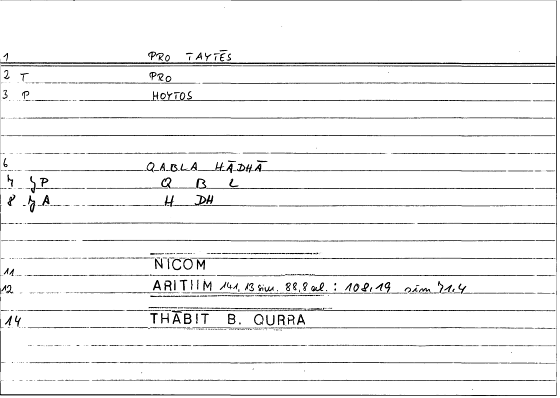 1 PRO TAYTĒS
2 T PRO
3 P HOYTOS
6 QABLA HĀDHĀ
7 P Q B L
8 A H DH
11 NICOM
12 ARITIIM 141,13 sim. 88,8 al. : 108,19 sim 71.4
14 THĀBIT B. QURRA